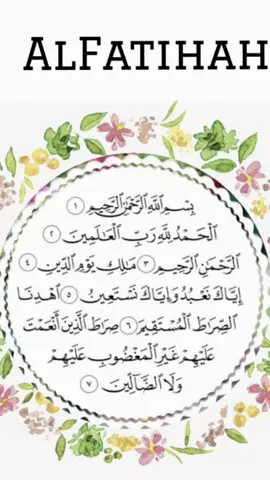 ALFATIHAH
بِسْمِ اللَّهِ الرَّحْمَٰنِ الرَّحِيمِ ١
الْحَمْدُ لِلَّهِ رَبِّ الْعَالَمِينَ ٢
الرَّحْمَٰنِ الرَّحِيمِ ٣ مَالِكِ يَوْمِ الدِّينِ ٤
إِيَّاكَ نَعْبُدُ وَإِيَّاكَ نَسْتَعِينُ ٥ اهْدِنَا
الصِّرَاطَ الْمُسْتَقِيمَ ٦ صِرَاطَ الَّذِينَ أَنْعَمْتَ
عَلَيْهِمْ غَيْرِ الْمَغْضُوبِ عَلَيْهِمْ
وَلَا الضَّالِّينَ ٧